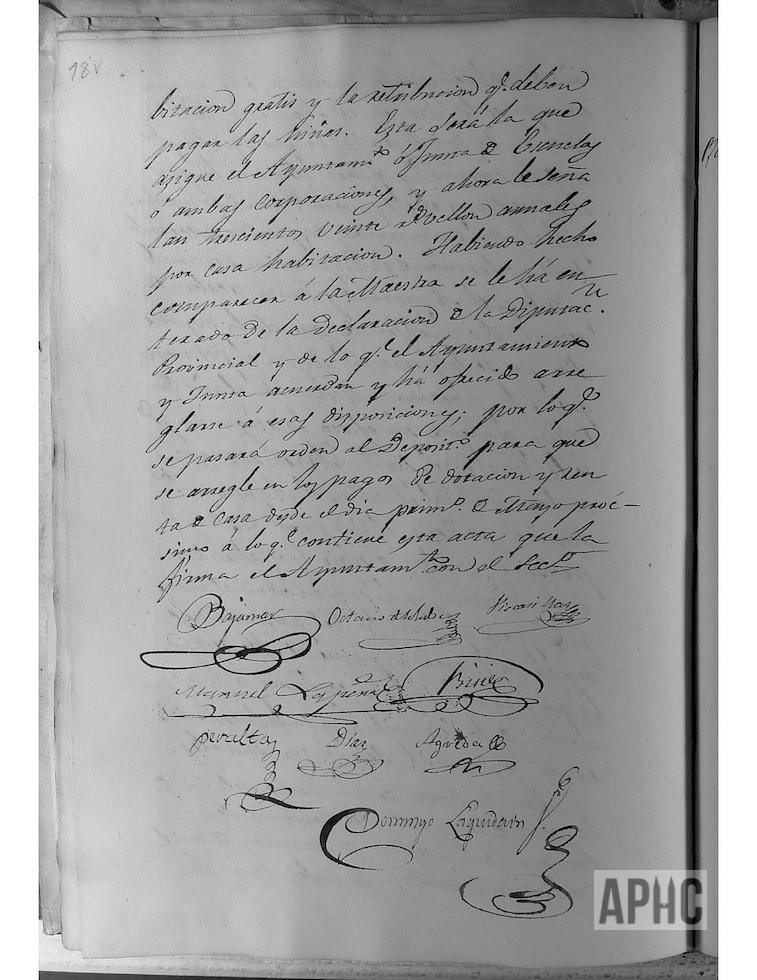 98v
bitacion gratis y la retribucion q.e deben
pagar las niñas. Esta será la que
asigne el Ayuntam.to ó Junta de Escuelas
ó ambas corporaciones, y ahora le seña
lan trescientos veinte r.s vellon annales
por casa habitacion. Habiendo hecho
comparecer á la Maestra se le há en
terado de la declaracion de la Diputac.n
Provincial y de lo q.e el Ayuntamiento
y Junta acuerdan y há ofrecido arre
glarse á esas disposiciones; por lo q.e
se pasará orden al Deposit.o para que
se arregle en los pagos de dotacion y ren
ta de casa desde el dia prim.o de Mayo próc-
simo á lo q.e contiene esta acta que la
firma el Ayuntam.to con el Secr.o
Bajamar Octavio de Toledo
Manuel Lapeña
Peralta Diaz Agreda
Domingo Eguidain
APHC